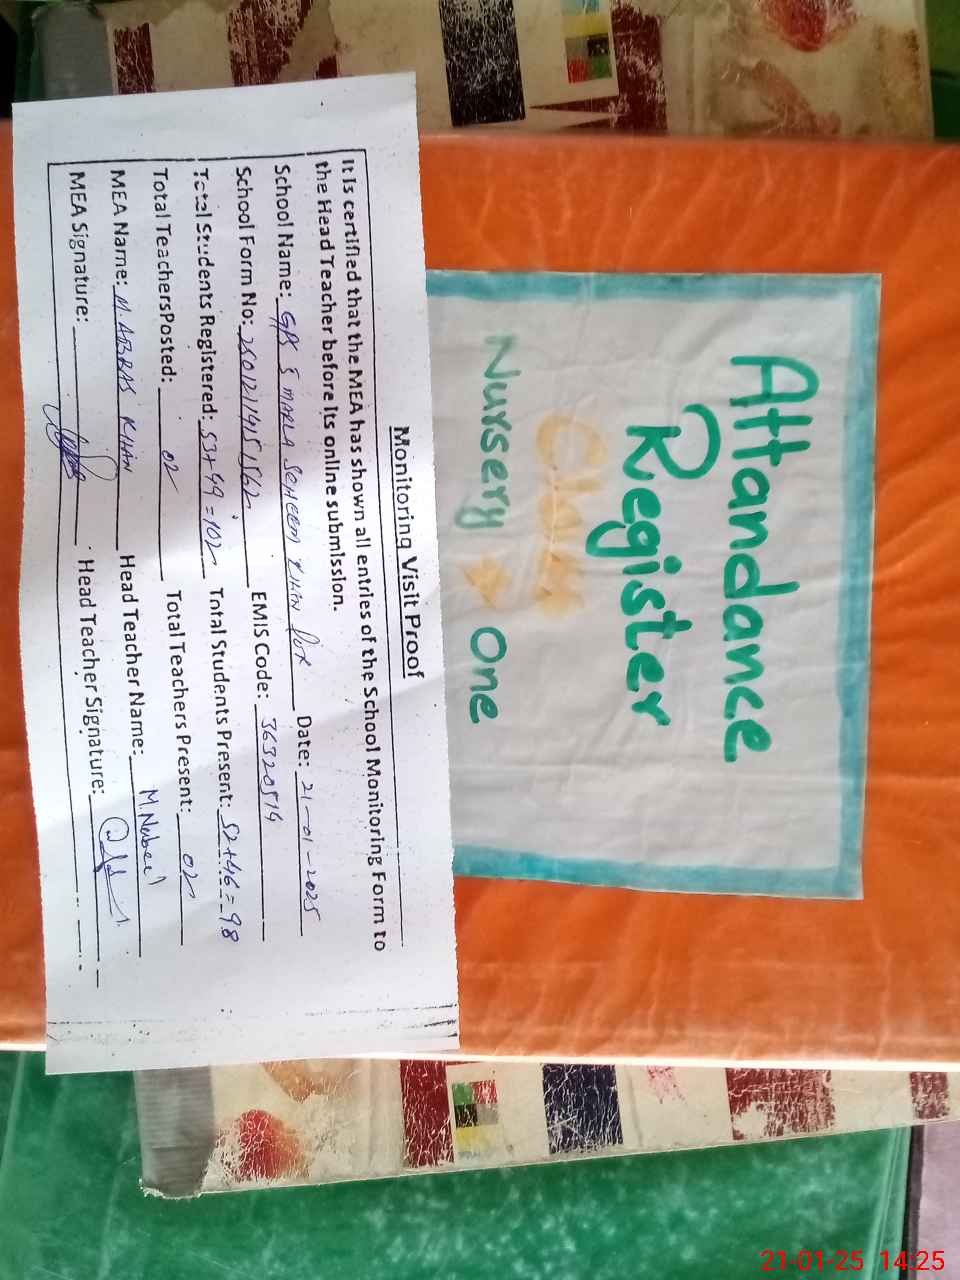 Attandance
Register
Class
Nursery One
Monitoring Visit Proof
It is certified that the MEA has shown all entries of the School Monitoring Form to
the Head Teacher before its online submission.
School Name: GPS 5 MARLA SCHEEM Date: 21-01-2025
School Form No: EMIS Code: 36320514
Total Students Registered: 53+49=102 Total Students Present: 52+46=98
Total TeachersPosted: 02 Total Teachers Present: 02
MEA Name: M. ABBAS KHAN Head Teacher Name: M. Nabeel
MEA Signature: Head Teacher Signature:
21-01-25 14:25